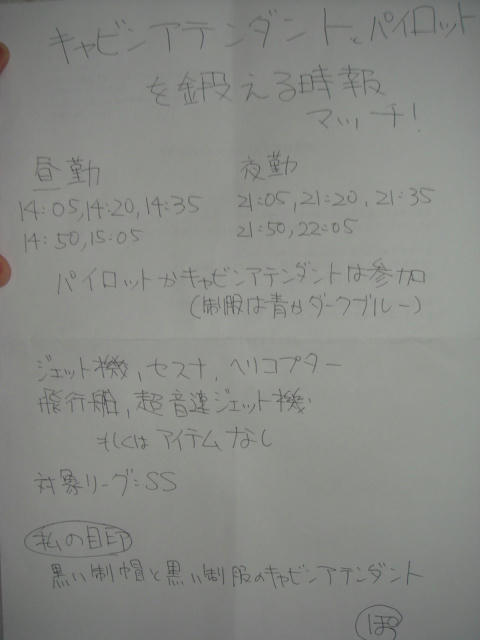 キャビンアテンダントとパイロット
を鍛える時報
マッチ!
昼勤
14:05,14:20,14:35
14:50,15:05
夜勤
21:05,21:20,21:35
21:50,22:05
パイロットかキャビンアテンダントは参加
(制服は青かダークブルー)
ジェット機,セスナ,ヘリコプター
飛行船,超音速ジェット機
もしくはアイテムなし
対象リーグ:SS
私の目印
黒い制帽と黒い制服のキャビンアテンダント
ぽ